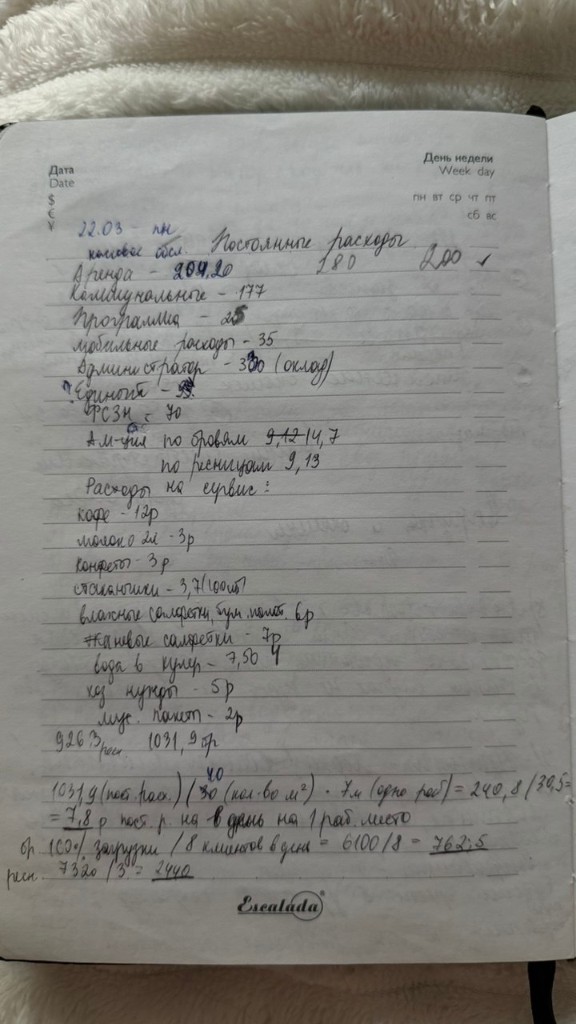 Дата
Date
День недели
Week day
$
€
¥
пн вт ср чт пт
сб вс
22.03 - пн
Постоянные расходы
Аренда - 204,20 180 200 ✓
Коммунальные - 177
Программа - 25
Мобильные расходы - 35
Администратор - 330 (оклад)
Единый -
ФСЗН = 70
Ам-ция по бровям 9,12 14,7
по ресницам 9,13
Расходы на сервис:
кофе - 12р
молоко 2л - 3р
конфеты - 3р
стаканчики - 3,7 (100шт)
влажные салфетки, бум. полот. 6р
тканевые салфетки - 7р
вода в кулер - 7,50 4
хоз нужды - 5р
мус. пакеты - 2р
926.3 ресн. 1031,9 бр
40
1031,9 (пост. расх.) / 30 (кол-во м²) · 7м (одно раб) = 240,8 / 30,5 =
= 7,8 р пост. р. на день на 1 раб. место
бр. 100% загрузки / 8 клиентов в день = 6100/8 = 762,5
ресн. 7320 / 3 = 2440
Escalada®